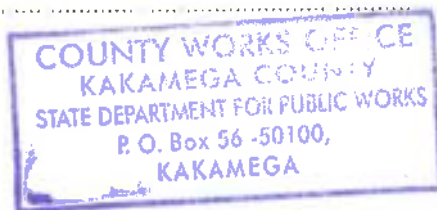 COUNTY WORKS OFFICE
KAKAMEGA COUNTY
STATE DEPARTMENT FOR PUBLIC WORKS
P. O. Box 56 -50100,
KAKAMEGA